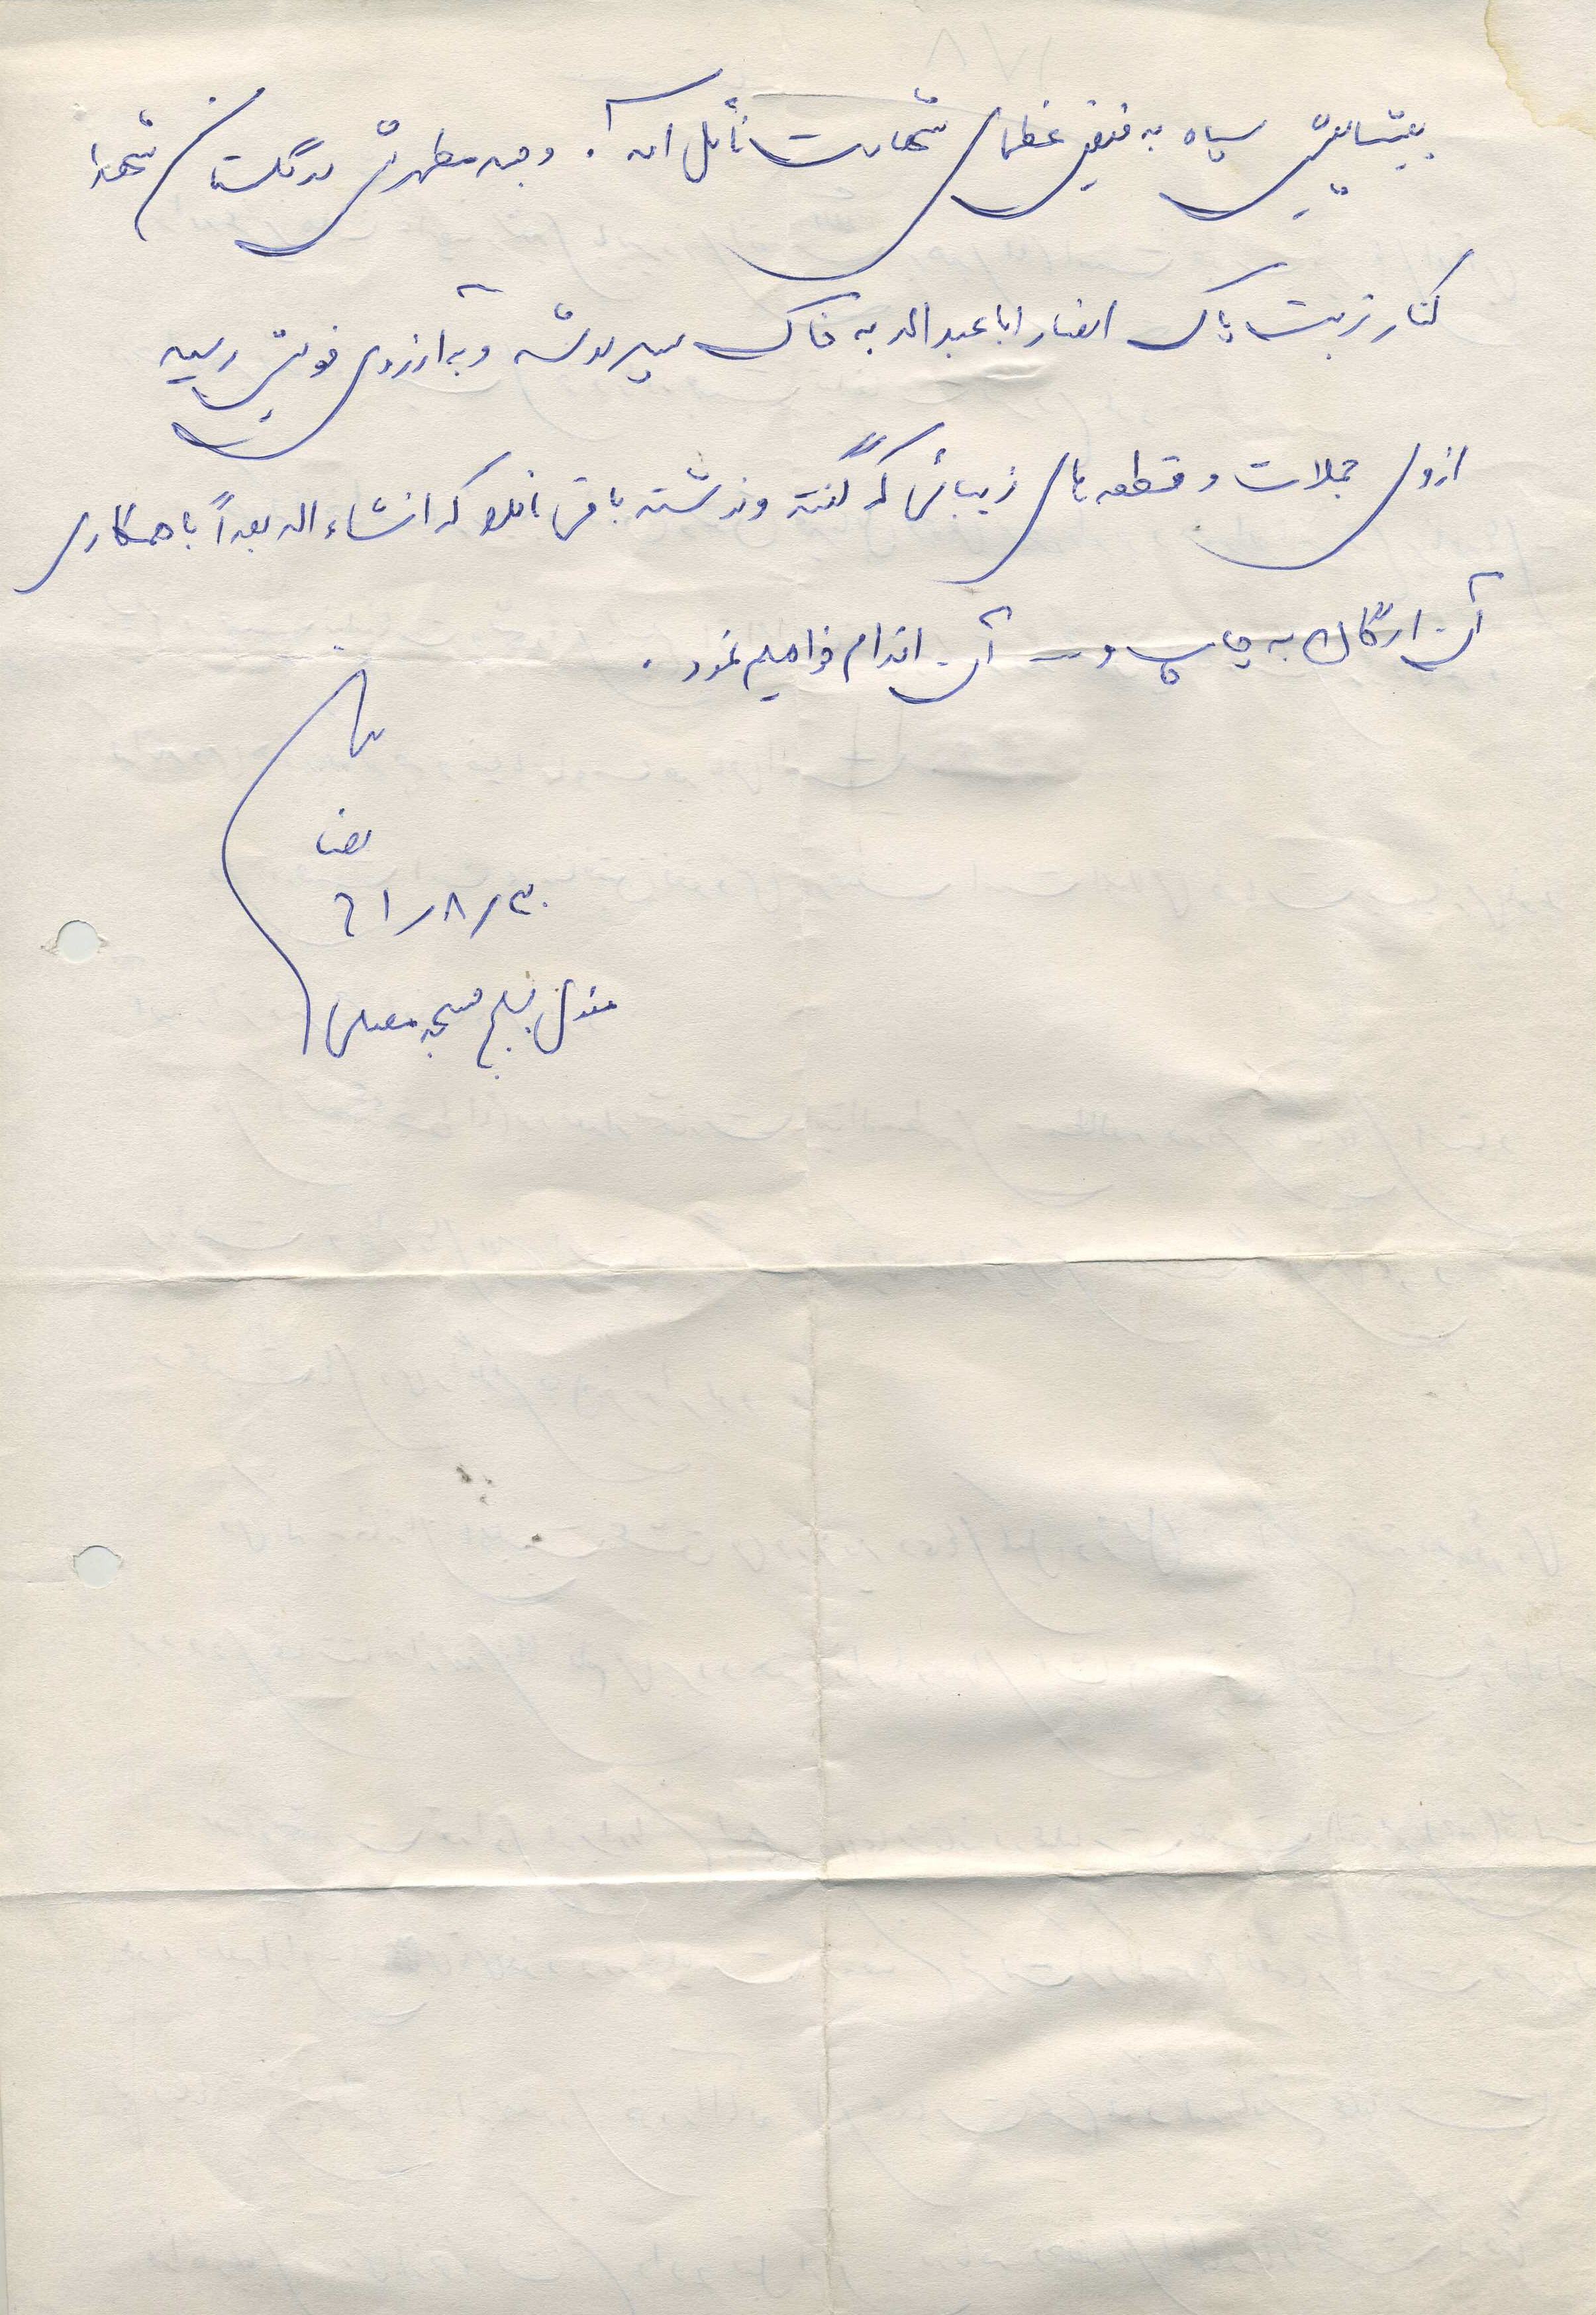 پیشاپیش سپاه به فیض عظمای شهادت نائل آمد. و جسد مطهرش در گلستان شهدا
کنار تربت پاک انصار اباعبدالله به خاک سپرده شد و به آرزوی خویش رسید
از وی جملات و قطعه های زیبائی که گفته و نوشته باقی مانده که انشاءاله بعداً با همکاری
آن ارگان به چاپ و آن اقدام خواهیم نمود.
امضا
۶۱/۸/۳۰
بسیج مسجد مصلی